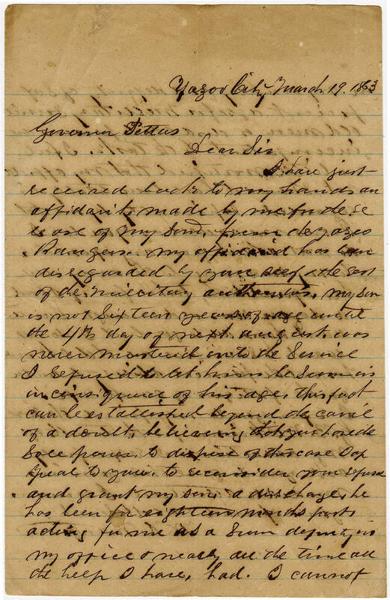 Yazoo City March 19. 1863
Governor Pettus
Dear Sir
I have just
received back to my hands an
affidavit made by me for the re
lease of my son, from the Yazoo
Rangers. my affidavit has been
disregarded by your self & the rest
of the Military authorities, my son
is not Sixteen years of age until
the 4th day of next august. was
never mustered into the Service
I refused to let him be sworn in
in consequence of his age, this fact
can be established beyond the cavil
of a doubt, believing that you have the
Sole power to dispose of this case I ap
peal to you to reconsider your refusal
and grant my son a discharge, he
has been for eighteen months past
acting for me as a Sworn deputy in
my office & nearly all the time all
the help I have had. I cannot